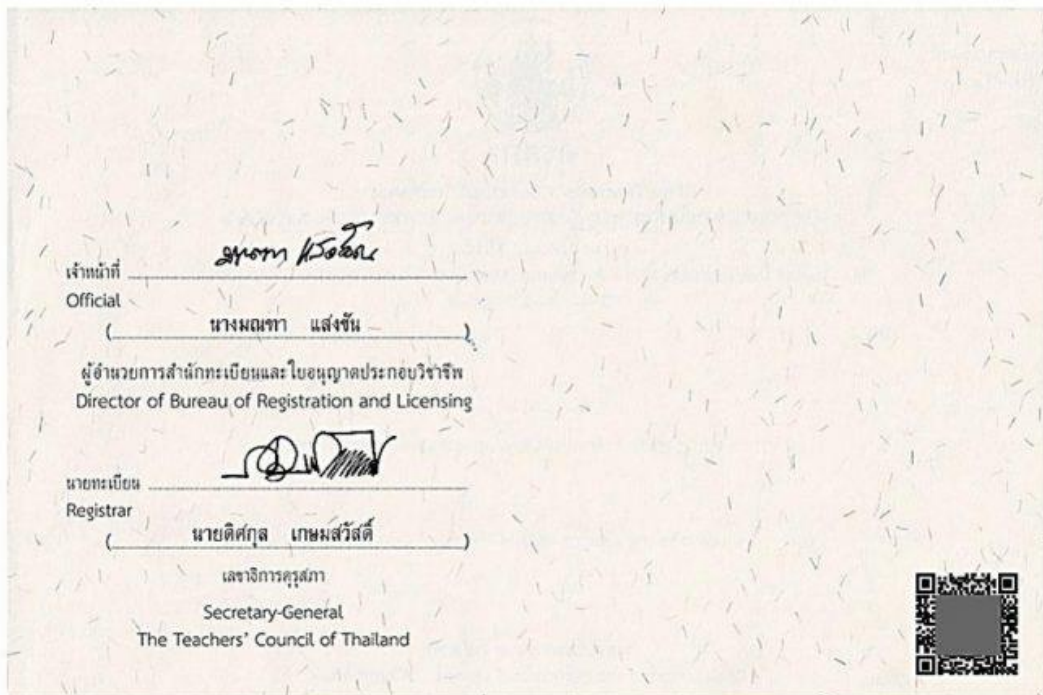 เจ้าหน้าที่
Official
( นางมณฑา แสงชัน )
ผู้อำนวยการสำนักทะเบียนและใบอนุญาตประกอบวิชาชีพ
Director of Bureau of Registration and Licensing
นายทะเบียน
Registrar
( นายดิศกุล เกษมสวัสดิ์ )
เลขาธิการคุรุสภา
Secretary-General
The Teachers' Council of Thailand